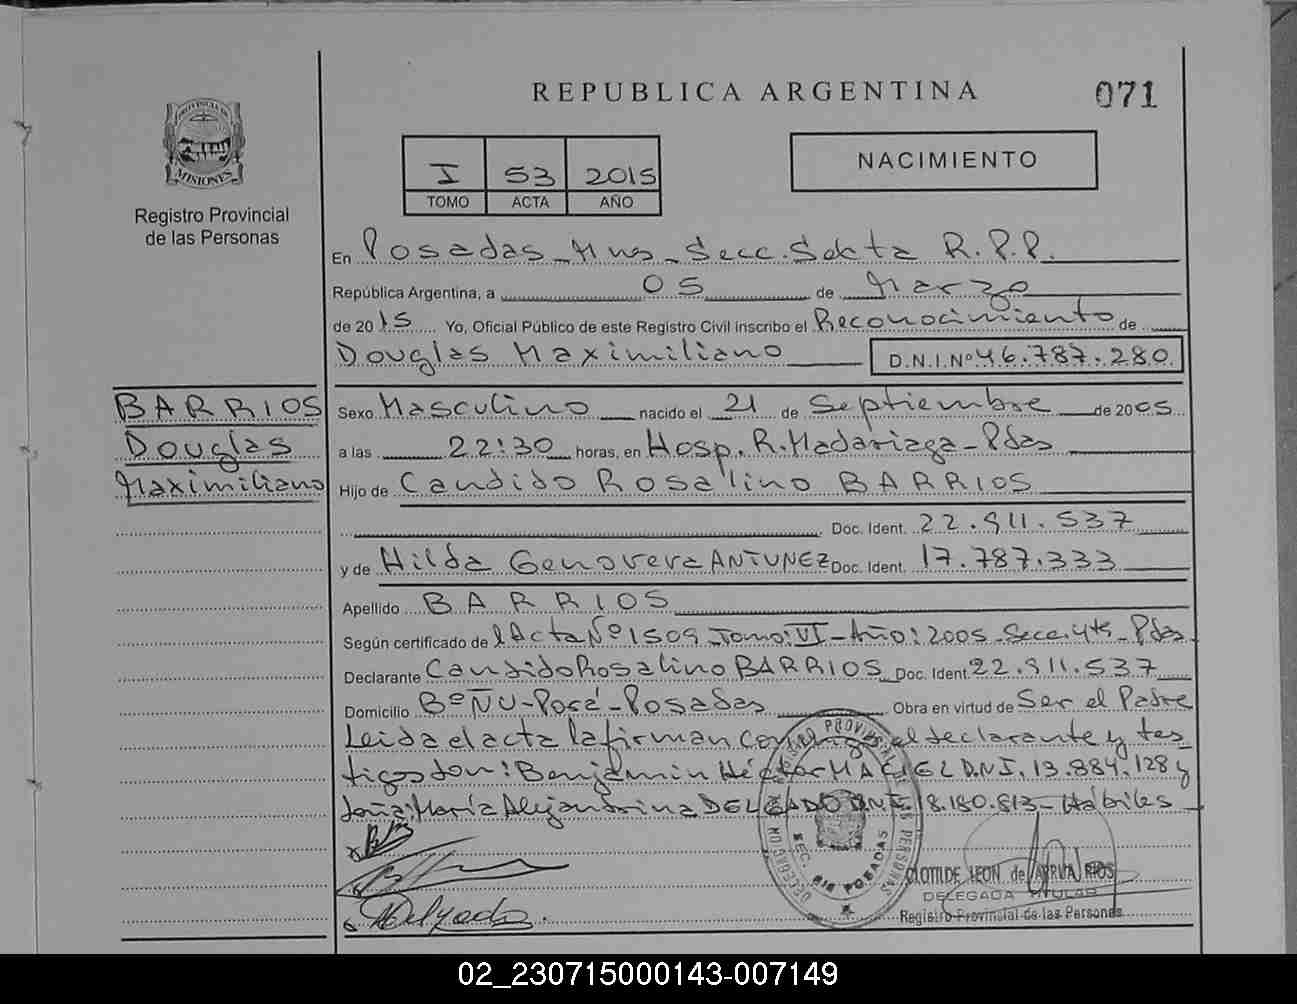 REPUBLICA ARGENTINA
071
PROVINCIA DE
MISIONES
Registro Provincial
de las Personas
I 53 2015
TOMO ACTA AÑO
NACIMIENTO
En Posadas - Mns - Secc. Sexta R.P.P.
República Argentina, a 05 de Marzo
de 2015 Yo, Oficial Público de este Registro Civil inscribo el Reconocimiento de
Douglas Maximiliano D.N.I.Nº 46.787.280
BARRIOS
Douglas
Maximiliano
Sexo Masculino nacido el 21 de Septiembre de 2005
a las 22:30 horas, en Hosp. R. Madariaga - Pdas
Hijo de Candido Rosalino BARRIOS
Doc. Ident. 22.911.537
y de Hilda Genoveva ANTUNEZ Doc. Ident. 17.787.333
Apellido BARRIOS
Según certificado de l Acta Nº 1509 Tomo: VI - Año: 2005 - Secc. 4ta - Pdas
Declarante Candido Rosalino BARRIOS Doc. Ident 22.911.537
Domicilio Bº ÑU - Porá - Posadas Obra en virtud de Ser el Padre
Leida el acta la firman conmigo el declarante y tes
tigos don: Benjamin Héctor MACIEL D.N.I. 13.884.128 y
doña: María Alejandrina DELGADO DNI 18.180.813 - Hábiles
Delgado
SEC. 6ta POSADAS
CLOTILDE LEON de
DELEGADA TITULAR
Registro Provincial de las Personas
02_230715000143-007149